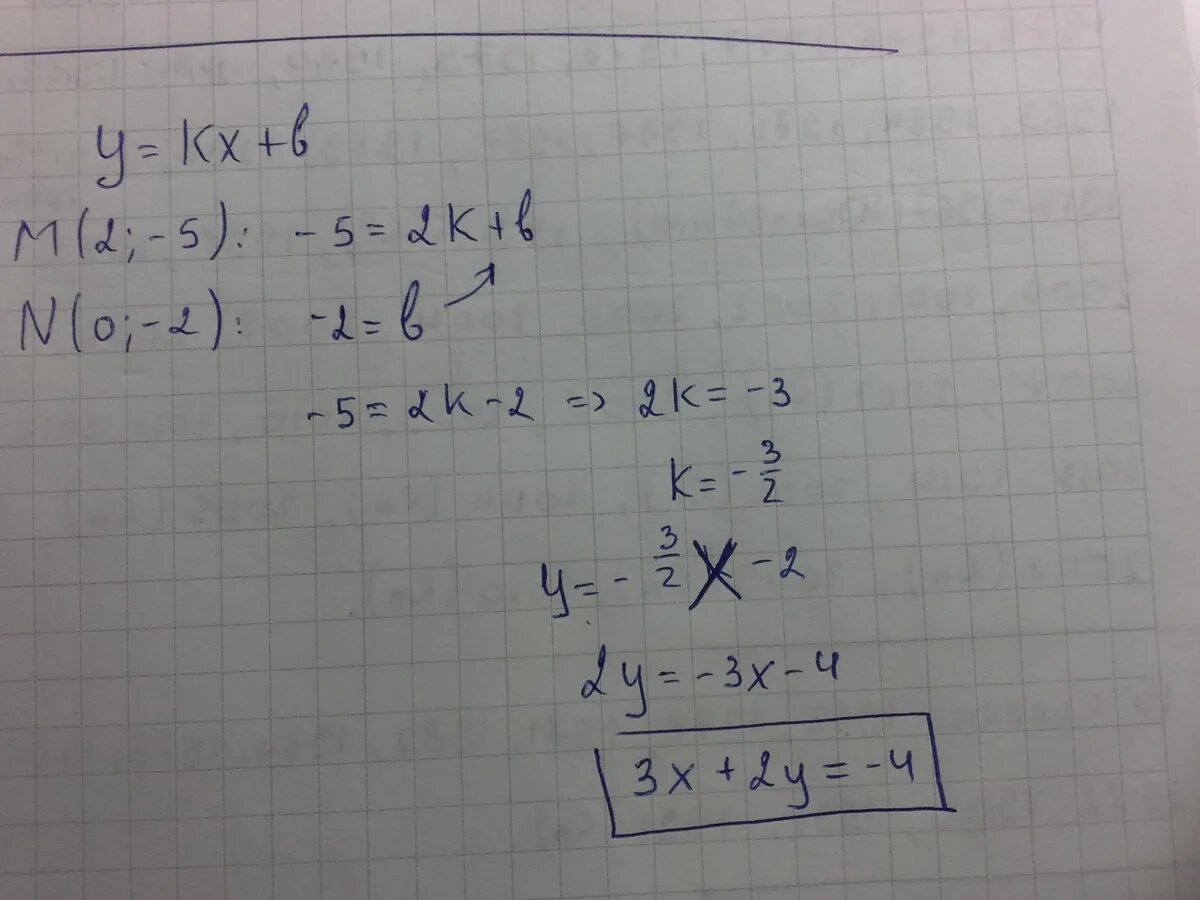 y = kx + b
M(2; -5): -5 = 2k + b
N(0; -2): -2 = b
-5 = 2k - 2 => 2k = -3
k = -3/2
y = -3/2 x - 2
2y = -3x - 4
3x + 2y = -4